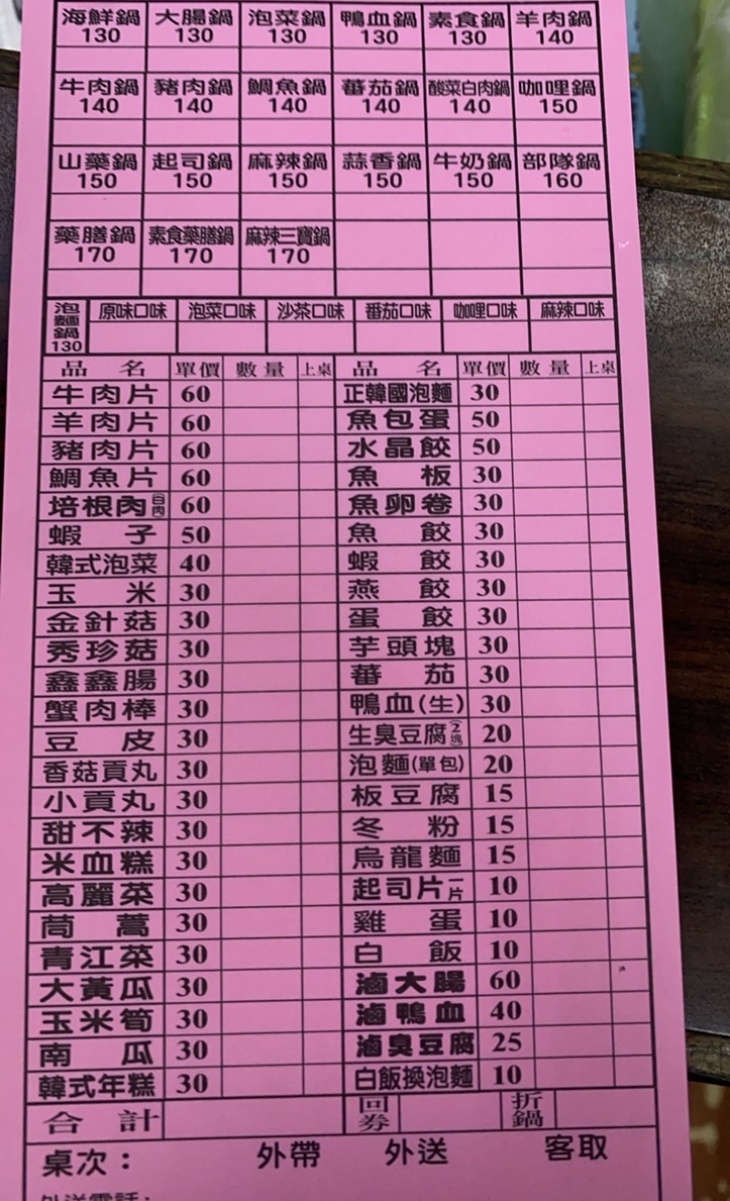 海鮮鍋 大腸鍋 泡菜鍋 鴨血鍋 素食鍋 羊肉鍋
130 130 130 130 130 140
牛肉鍋 豬肉鍋 鯛魚鍋 蕃茄鍋 酸菜白肉鍋 咖哩鍋
140 140 140 140 140 150
山藥鍋 起司鍋 麻辣鍋 蒜香鍋 牛奶鍋 部隊鍋
150 150 150 150 150 160
藥膳鍋 素食藥膳鍋 麻辣三寶鍋
170 170 170
泡麵鍋130 原味口味 泡菜口味 沙茶口味 番茄口味 咖哩口味 麻辣口味
品名 單價 數量 上桌 品名 單價 數量 上桌
牛肉片 60 正韓國泡麵 30
羊肉片 60 魚包蛋 50
豬肉片 60 水晶餃 50
鯛魚片 60 魚板 30
培根肉(白肉) 60 魚卵卷 30
蝦子 50 魚餃 30
韓式泡菜 40 蝦餃 30
玉米 30 燕餃 30
金針菇 30 蛋餃 30
秀珍菇 30 芋頭塊 30
鑫鑫腸 30 蕃茄 30
蟹肉棒 30 鴨血(生) 30
豆皮 30 生臭豆腐(2塊) 20
香菇貢丸 30 泡麵(單包) 20
小貢丸 30 板豆腐 15
甜不辣 30 冬粉 15
米血糕 30 烏龍麵 15
高麗菜 30 起司片一片 10
茼蒿 30 雞蛋 10
青江菜 30 白飯 10
大黃瓜 30 滷大腸 60
玉米筍 30 滷鴨血 40
南瓜 30 滷臭豆腐 25
韓式年糕 30 白飯換泡麵 10
合計 回券 折鍋
桌次： 外帶 外送 客取
外送電話：